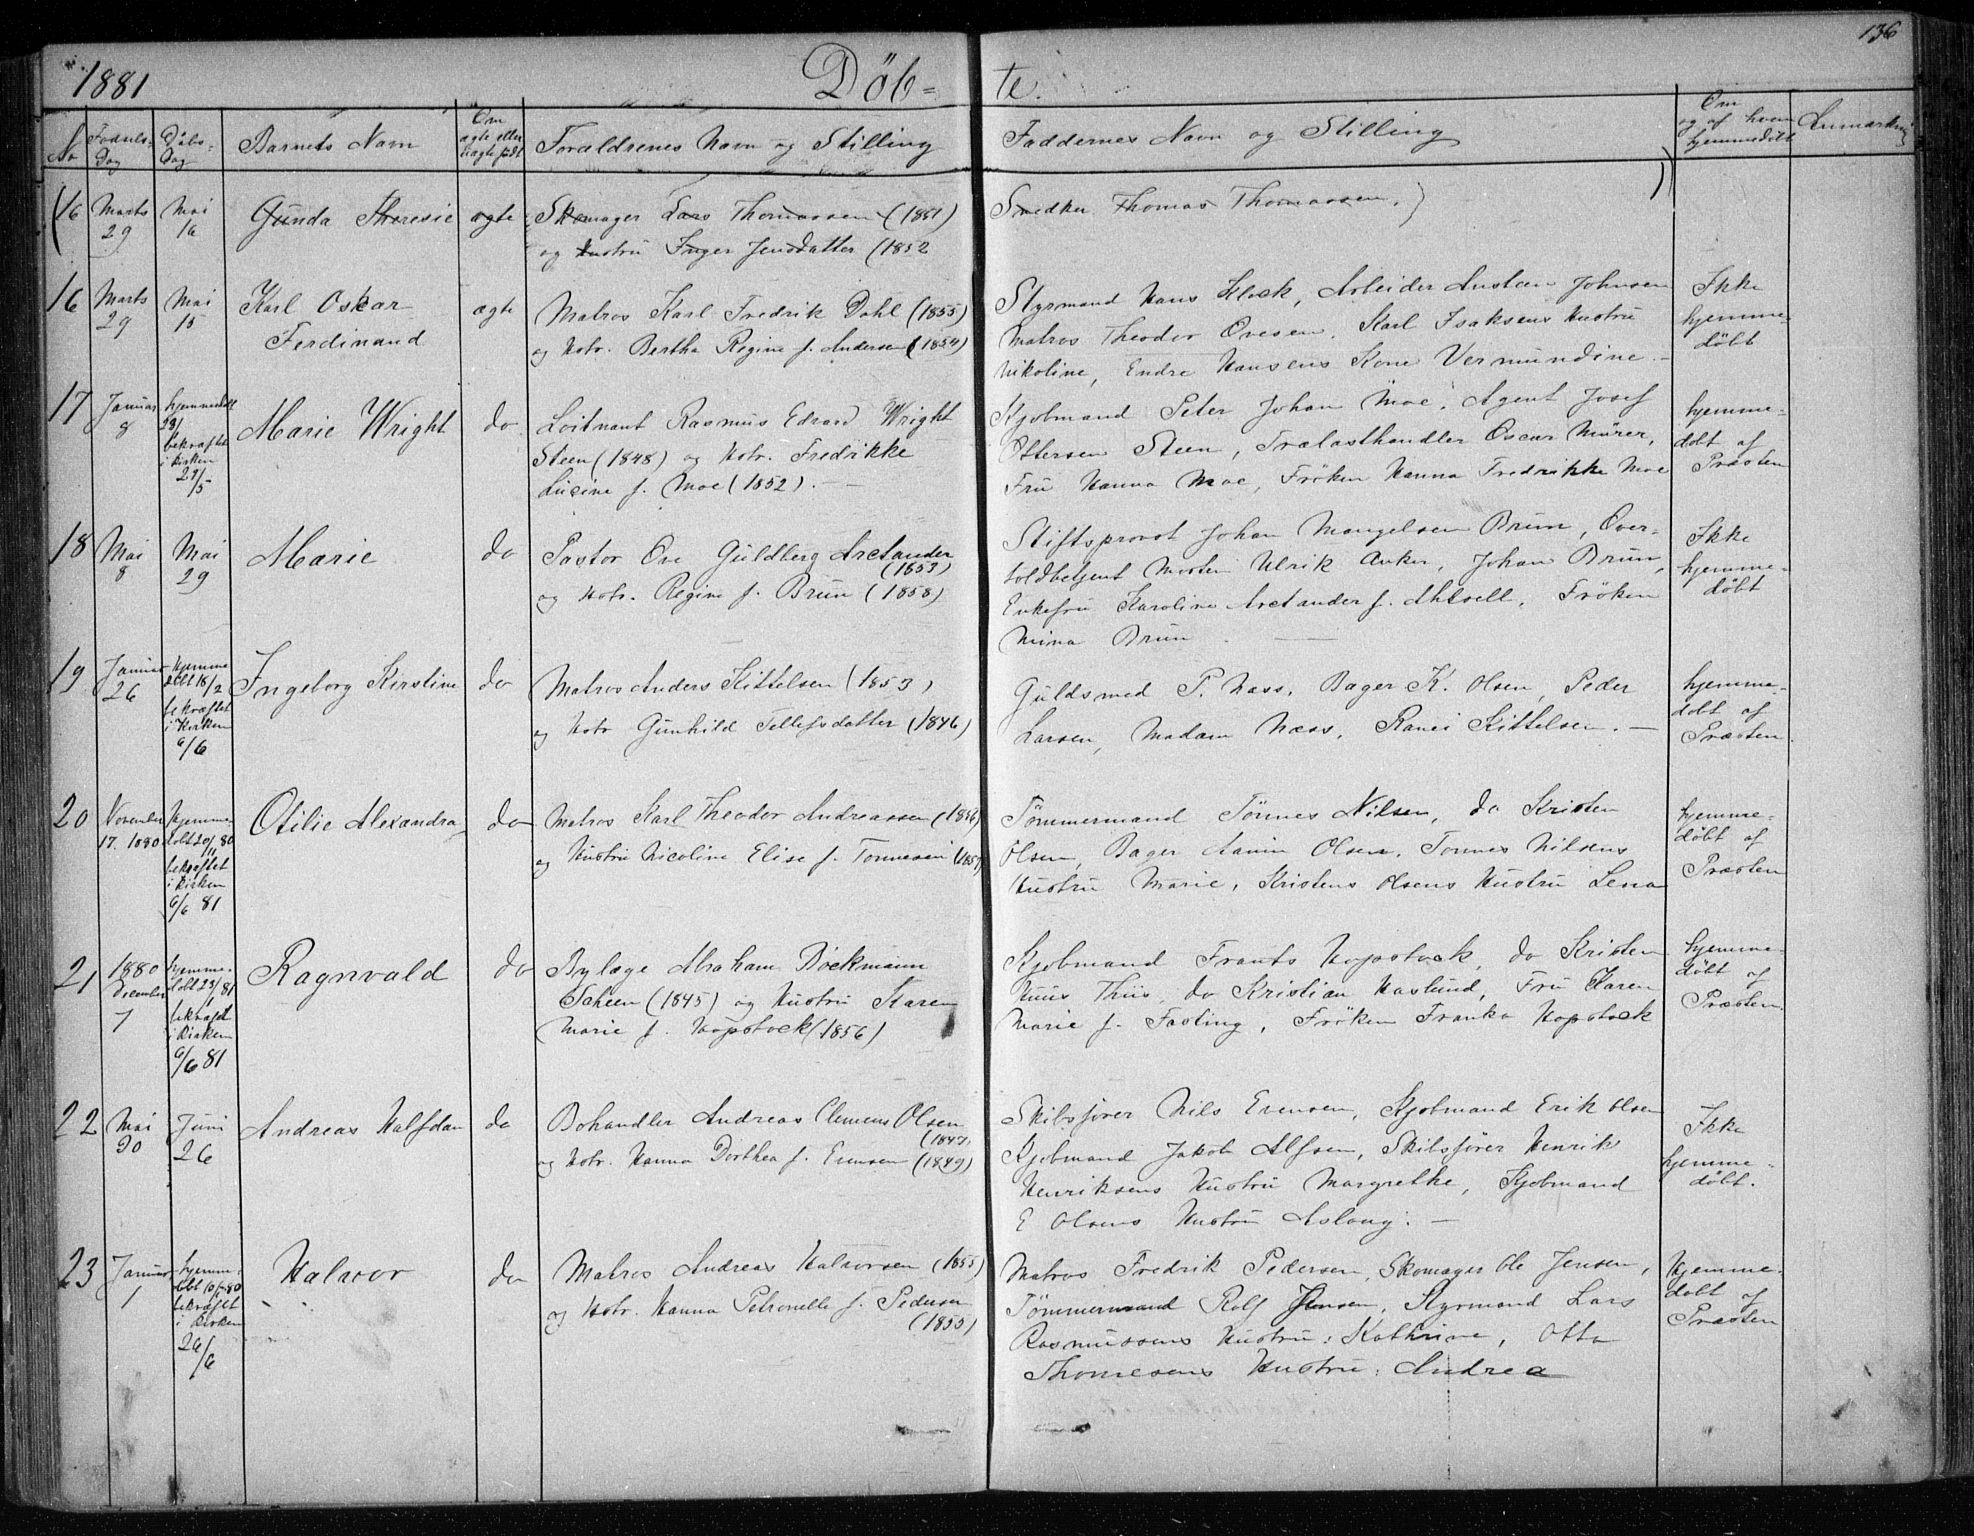 136
1881 Döb= te.
No Födsels- Dag Döbs- Dag Barnets Navn Om ægte eller uægte født Forældrenes Navn og Stilling Faddernes Navn og Stilling Om og af hvem hjemmedöbt Anmærkning
(16 Marts 29 Mai 16 Gunda Theresie ægte Skomager Lars Thomassen (1851) Snedker Thomas Thomassen.)
og Hustru Inger Jensdatter (1852
16 Marts 29 Mai 15 Karl Oskar ægte Matros Karl Fredrik Dahl (1855) Styrmand Hans Klock, Arbeider Austen Johnsen Ikke
Ferdinand og Hstr. Bertha Regine f. Andersen (1854) Matros Theodor Ovesen, Karl Isaksens Hustru hjemme-
Nikoline, Endre Hansens Kone Vermundine. døbt
17 Januar 8 hjemmedöbt 23/1 bekræftet i Kirken 29/5 Marie Wright do Loitnant Rasmus Edvard Wright Kjøbmand Peter Johan Moe, Agent Josef hjemme-
Steen (1848) og Hstr. Fredrikke Ottersen Steen, Trælasthandler Oscar Mürer, døbt af
Lucine f. Moe (1852). Fru Hanna Moe, Frøken Hanna Fredrikke Moe Præsten
18 Mai 8 Mai 29 Marie do Pastor Ove Guldberg Arctander (1853) Stiftsprovst Johan Mangelsen Brun, Over- Ikke
og Hstr. Regine f. Brun (1858) toldbetjent Morten Ulrik Anker, Johan Brun, hjemme-
Enkefru Karoline Arctander f. Frøken døbt
Mima Brun
19 Januar 26 Hjemme døbt 18/2 bekræftet i Kirken 6/6 Ingeborg Kirstine do Matros Anders Kittelsen (1853) Guldsmed P. Næss, Bager K. Olsen, Peder hjemme-
og Hstr Gunhild Tellefsdatter (1846) Larsen, Madam Næss, Kittelsen. døbt af
Præsten.
20 November 17. 1880 Hjemme døbt 20/11 80 bekræftet i Kirken 6/6 81 Otilie Alexandra do Matros Karl Theodor Andreassen (1856) Tømmermand Tønnes Nilsen, do Kristen hjemme-
og Hustru Nicoline Elise f. Tonnesen (1857) Olsen, Bager Olsen, Tonnes Nilsens døbt af
Hustru Marie, Kristens Olsens Hustru Lena Præsten
21 1880 December 7 hjemme- døbt 23/1 81 bekræftet i Kirken 6/6 81 Ragnvald do Bylæge Abraham Böckmann Kjøbmand Frants Hopstock, do Kristen hjemme-
Scheen (1845) og Hustru Karen Huus Thiis, do Kristian Haslund, Fru Karen døbt af
Marie f. Hopstock (1856) Marie f. Fasting, Frøken Franka Hopstock Præsten.
22 Mai 30 Juni 26 Andreas Halfdan do Bohandler Andreas Clemens Olsen (1847) Skibsfører Nils Evensen, Kjøbmand Erik Olsen Ikke
og Hstr. Hanna Dorthea f. Evensen (1849) Kjøbmand Jakob Alfsen, Skibsfører Henrik hjemme-
Henriksens Hustru Margrethe, Kjøbmand døbt.
E Olsens Hustru Aslaug.
23 Januar 1 hjemme- døbt 80 bekræftet i Kirken 26/6 Halvor do Matros Andreas Halvorsen (1855) Matros Fredrik Pedersen, Skomager Ole Jensen, Hjemme-
og Hstr. Hanna Petronelle f. Pedersen (1855) Tømmermand Rolf Jensen, Styrmand Lars døbt af
Rasmussens Hustru: Kathrine, Otto Præsten
Thomesens Hustru: Andrea